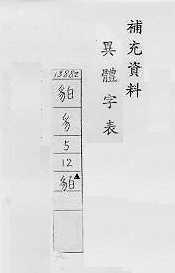 補充資料
異體字表
13882
豸
5
12